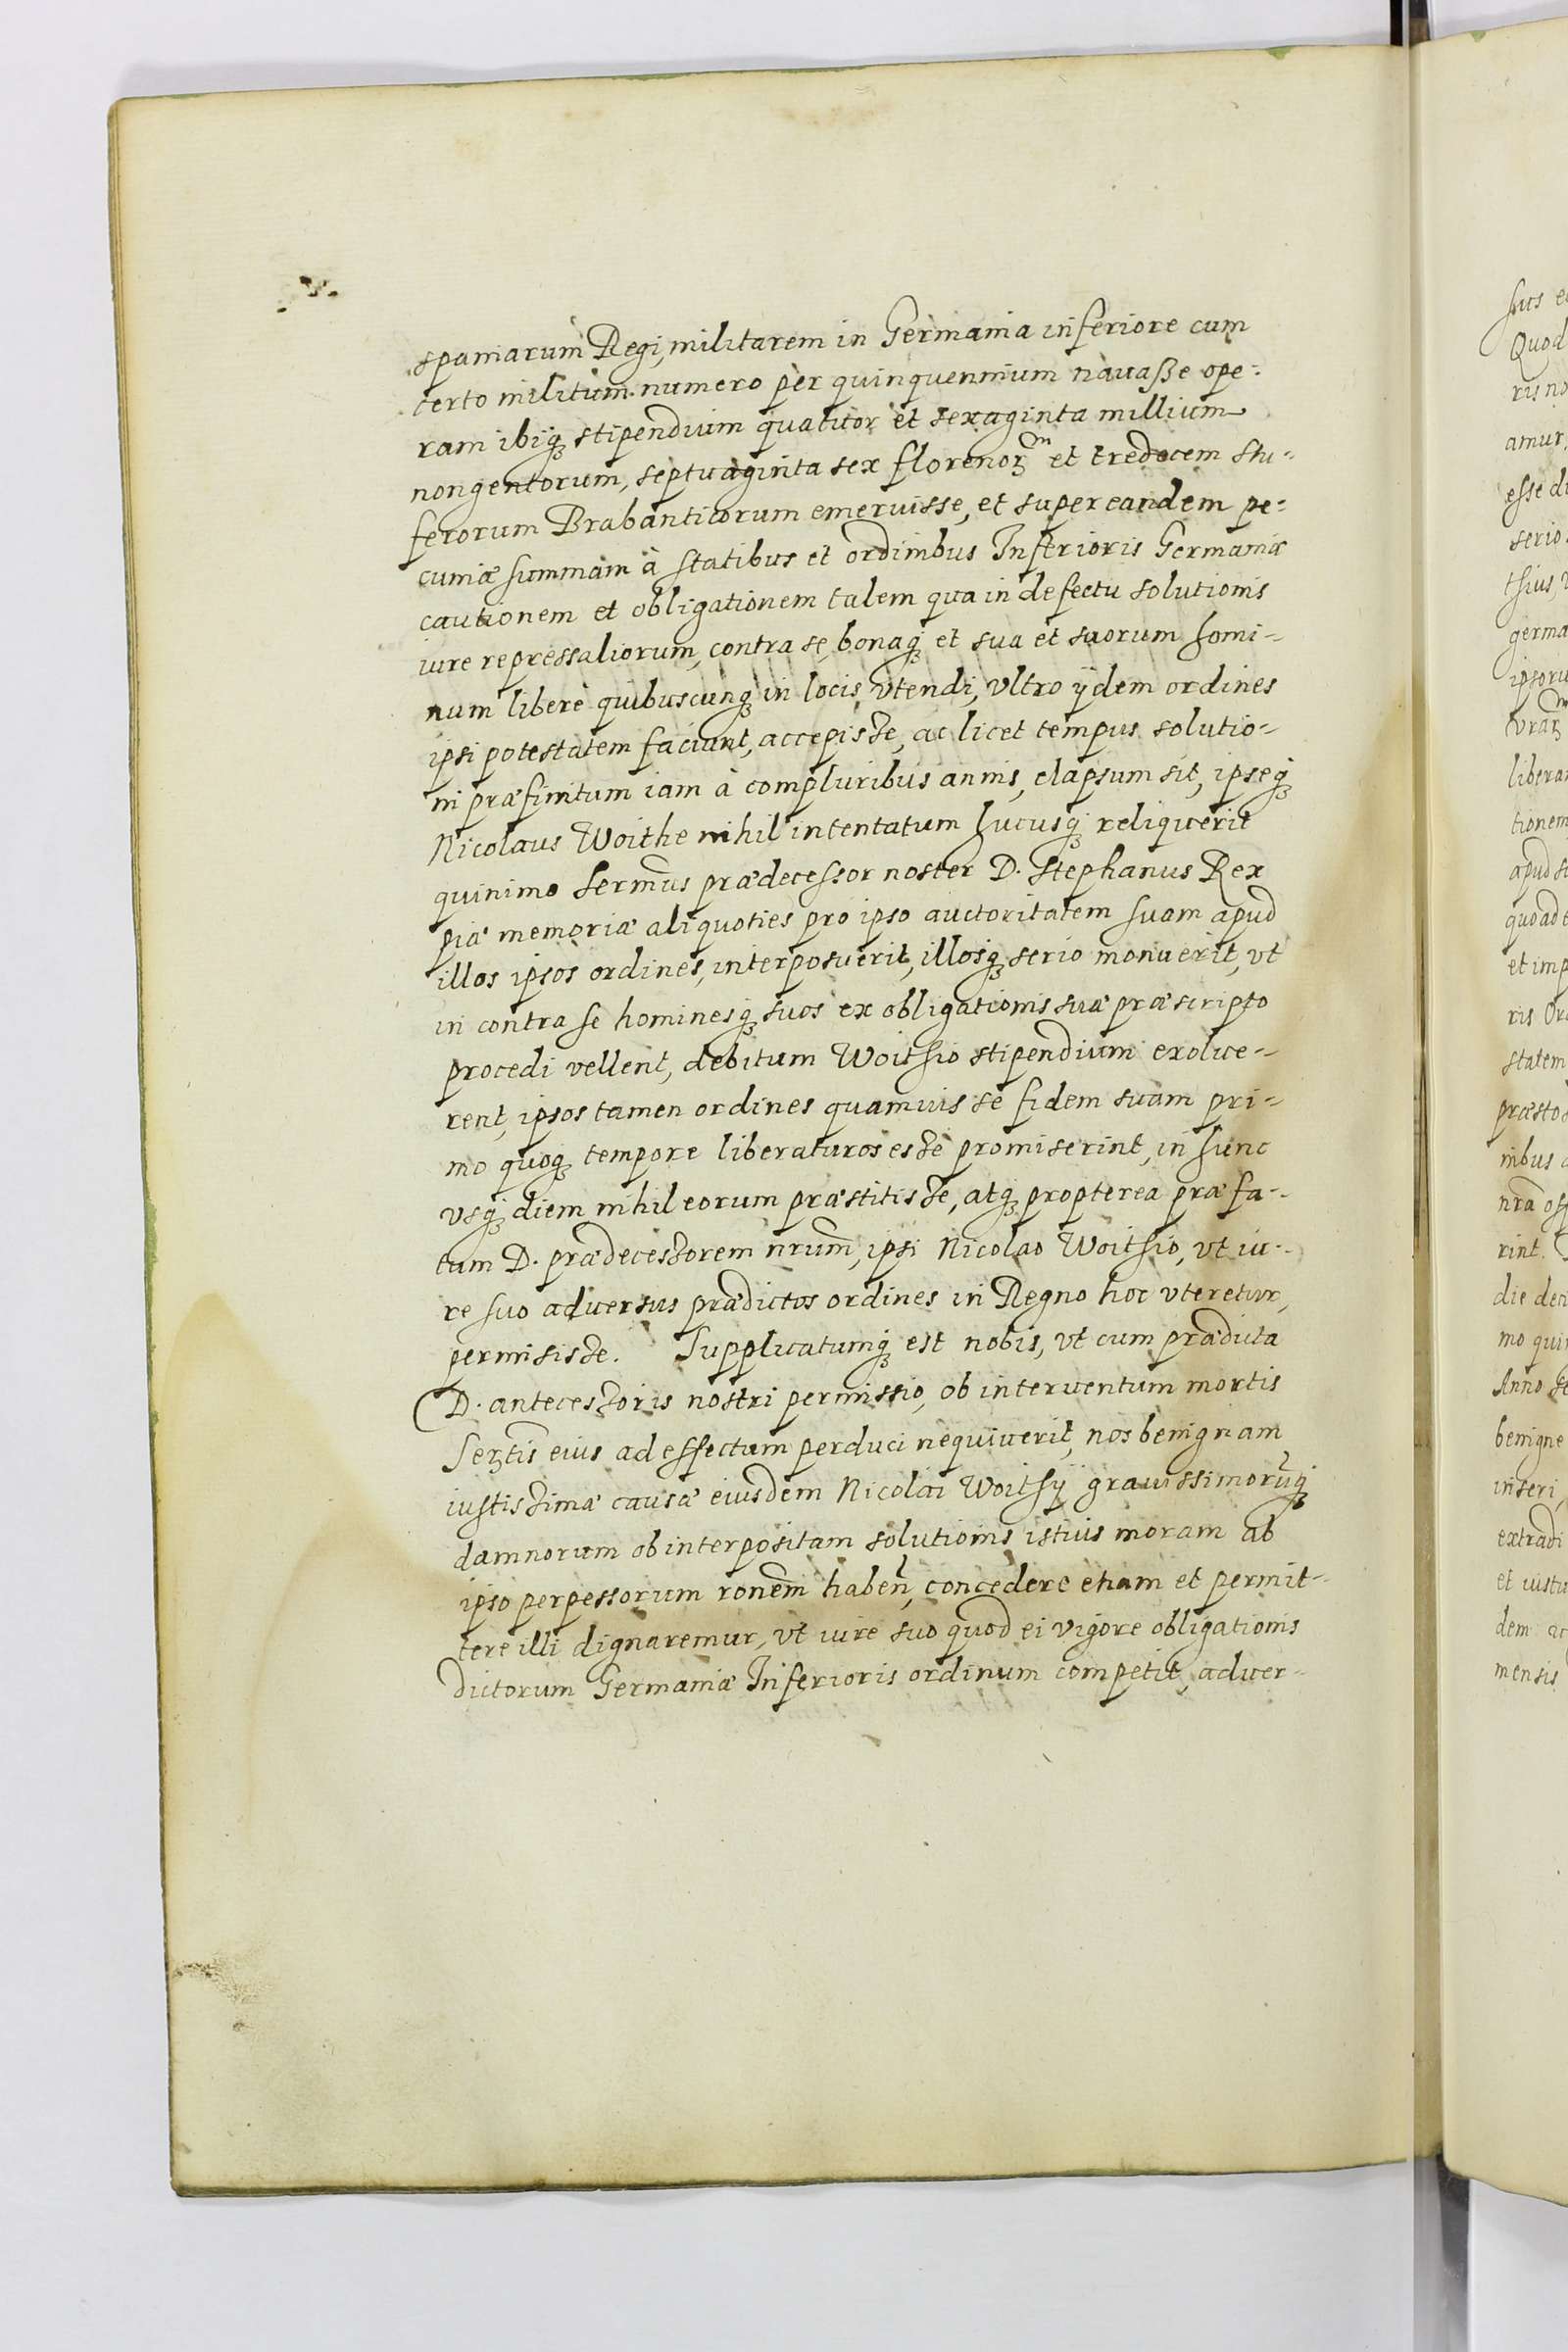 spaniarum Regi, militarem in Germania inferiore cum
certo militum numero per quinquennium nauasse ope-
ram ibiq; stipendium quatuor et sexaginta millium
nongentorum, septuaginta sex florenoꝝ et tredecem stu-
ferorum Brabanticorum emeruisse, et super eandem pe-
cuniæ summam à statibus et ordinibus Inferioris Germaniæ
cautionem et obligationem talem qua in defectu solutionis
iure repressaliorum, contra se, bonaq; et sua et suorum homi-
num liberè quibuscunq; in locis vtendi, vltro ÿdem ordines
ipsi potestatem faciunt, accepisse, ac licet tempus solutio-
ni præfinitum iam à compluribus annis, elapsum sit, ipseq;
Nicolaus Woithe nihil intentatum hucusq; reliquerit
quinimo Sermūs prædecessor noster D. Stephanus Rex
piæ memoriæ aliquoties pro ipso auctoritatem suam apud
illos ipsos ordines, interposuerit, illosq; serio monuerit, vt
in contra se hominesq; suos ex obligationis suæ præscripto
procedi vellent, debitum Woithio stipendium exolue-
rent, ipsos tamen ordines quamuis se fidem suam pri-
mo quoq; tempore liberaturos esse promiserint, in hunc
vsq; diem nihil eorum præstitisse, atq; propterea præfa-
tum D. prædecessorem nrum̄, ipsi Nicolao Woithio, vt iu-
re suo aduersus prædictos ordines in Regno hoc vteretur,
permisisse. Supplicatumq; est nobis, vt cum prædicta
D. antecessoris nostri permissio, ob interuentum mortis
Serꝫtis eius ad effectum perduci nequiuerit, nos benignam
iustissimæ causæ eiusdem Nicolai Woithÿ grauissimorūq;
damnorum ob interpositam solutionis istius moram ab
ipso perpessorum ronem̄ haben̄, concedere etiam et permit-
tere illi dignaremur, vt iure suo quod ei vigore obligationis
dictorum Germaniæ Inferioris ordinum competit, aduer-
Quod
ris no
amur,
esse di
serio
thius,
germa
ipsoru
liberan
tionem
apud st
quoad
et imp
ris Or
statem
præsto
nibus
nrā
rint.
die deci
mo quin
Anno
benigne
inseri,
extradi
et iustu
dem ac
mensis